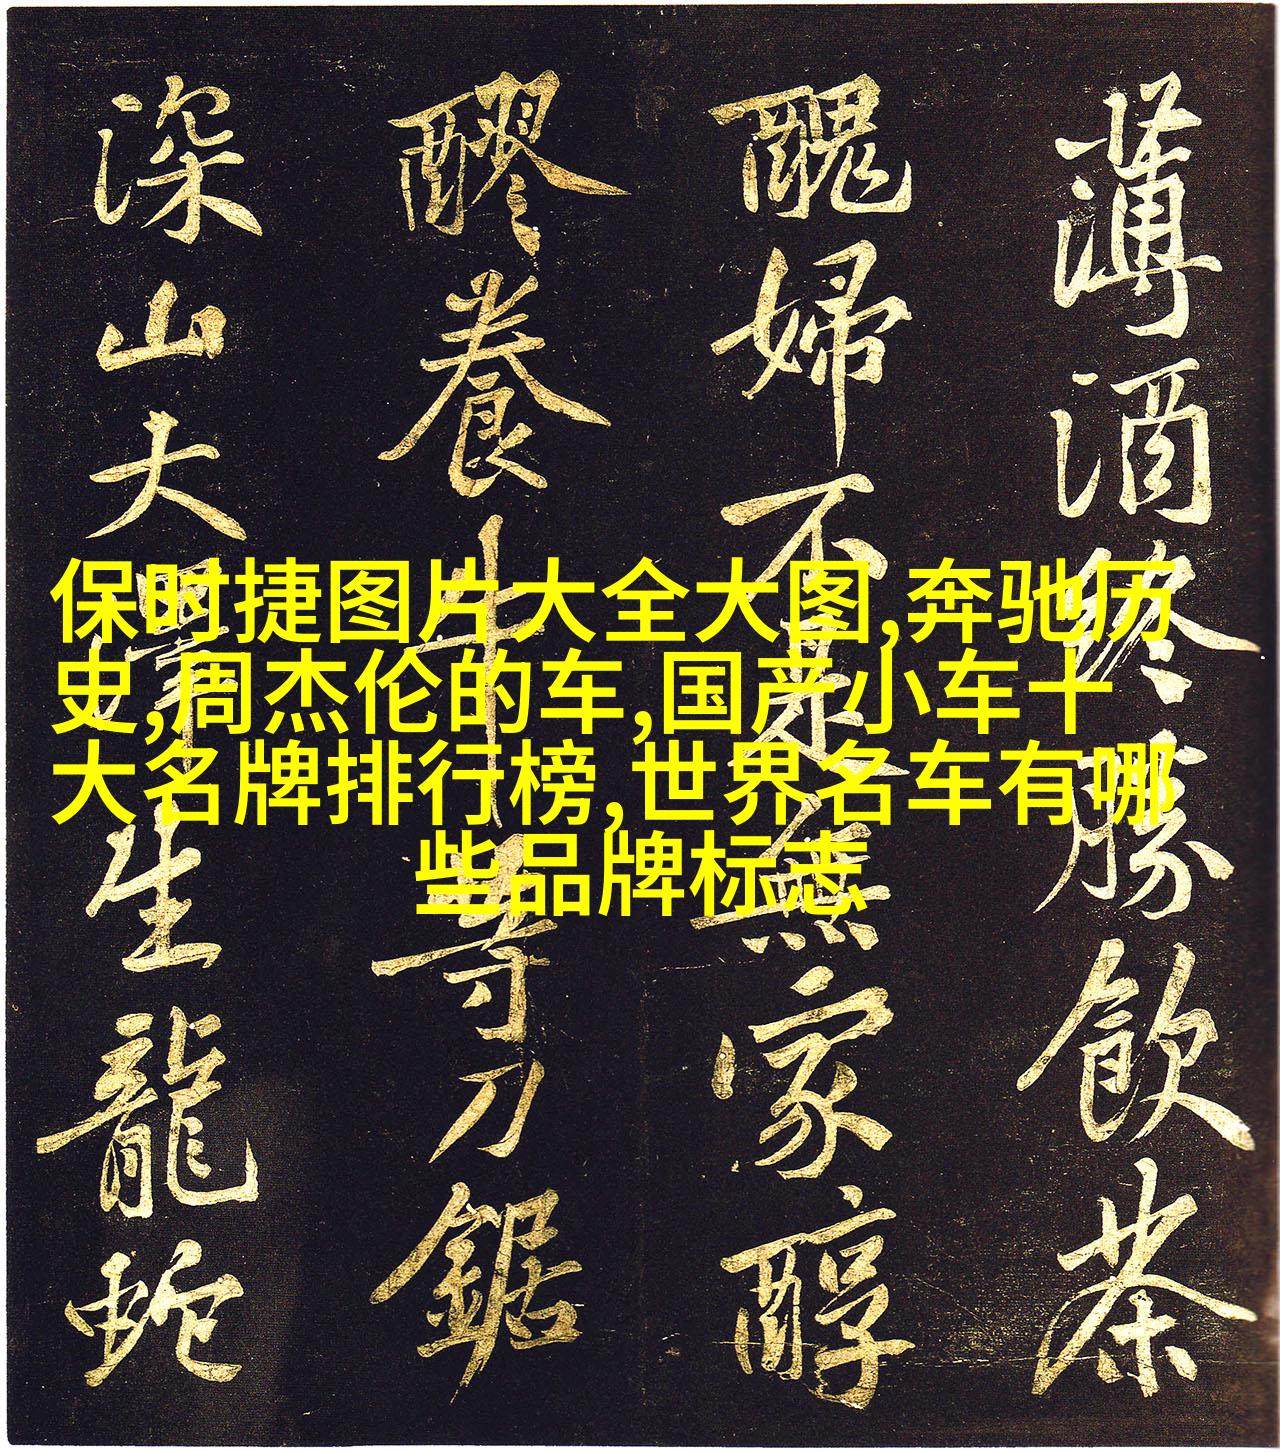 薄酒終勝飲茶
醜婦不是無家醇
醪養牛等刀鋸
深山大澤生龍蛇
保时捷图片大全大图,奔驰历
史,周杰伦的车,国产小车十
大名牌排行榜,世界名车有哪
些品牌标志